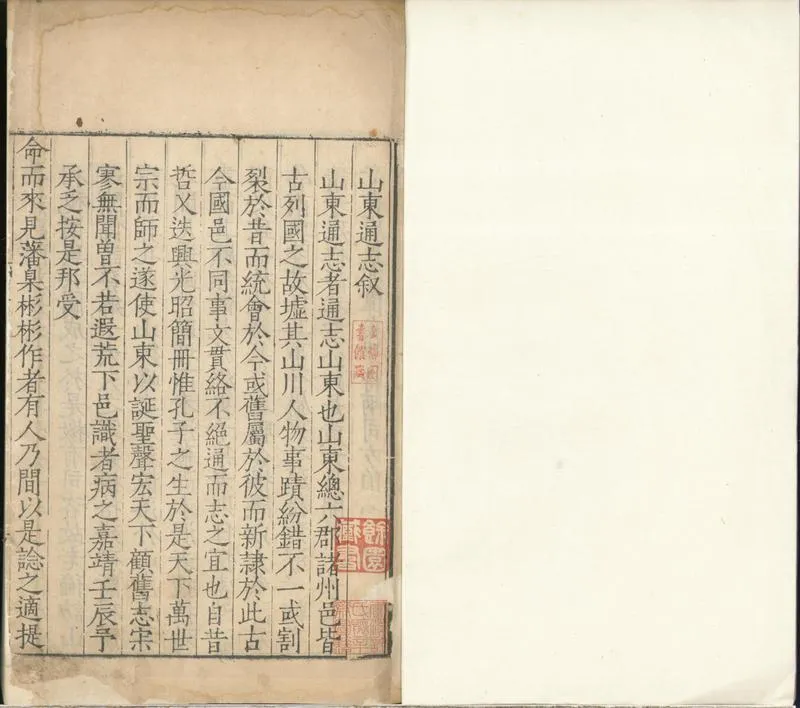 山東通志叙
山東通志者通志山東也山東總六郡諸州邑皆
古列國之故墟其山川人物事蹟紛錯不一或割
裂於昔而統會於今或舊屬於彼而新隷於此古
今國邑不同事文貫絡不絕通而志之宜也自昔
哲乂迭興光昭簡冊惟孔子之生於是天下萬世
宗而師之遂使山東以誕聖聲宏天下顧舊志宋
寥無聞曽不若遐荒下邑識者病之嘉靖壬辰予
承乏按是邦受
命而來見藩臬彬彬作者有人乃間以是諗之適提
餘園
藏書